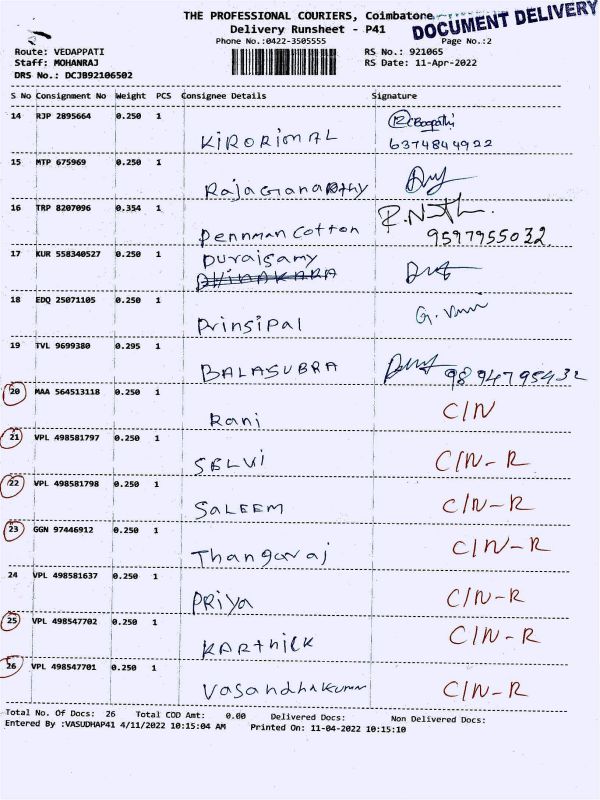 THE PROFESSIONAL COURIERS, Coimbatore
DOCUMENT DELIVERY
Delivery Runsheet - P41
Phone No.:0422-3505555
Page No.:2
Route: VEDAPPATI
RS No.: 921065
Staff: MOHANRAJ
RS Date: 11-Apr-2022
DRS No.: DCJB92106502
S No Consignment No Weight PCS Consignee Details Signature
14 RJP 2895664 0.250 1
KIRORIMAL 6374844922
15 MTP 675969 0.250 1
RajaGanapathy
16 TRP 8207096 0.354 1
Pennman Cotton 9597955032
17 KUR 558340527 0.250 1
Duraisamy
DHINAKARA
18 EDQ 25071105 0.250 1
Prinsipal
19 TVL 9699380 0.295 1
BALASUBRA 9894795432
20 MAA 564513118 0.250 1
Rani C/N
21 VPL 498581797 0.250 1
SELVI C/N-R
22 VPL 498581798 0.250 1
SALEEM C/N-R
23 GGN 97446912 0.250 1
Thangaraj C/N-R
24 VPL 498581637 0.250 1
PRiya C/N-R
25 VPL 498547702 0.250 1
KARTHICK C/N-R
26 VPL 498547701 0.250 1
Vasandhakumar C/N-R
Total No. Of Docs: 26 Total COD Amt: 0.00 Delivered Docs: Non Delivered Docs:
Entered By :VASUDHAP41 4/11/2022 10:15:04 AM Printed On: 11-04-2022 10:15:10